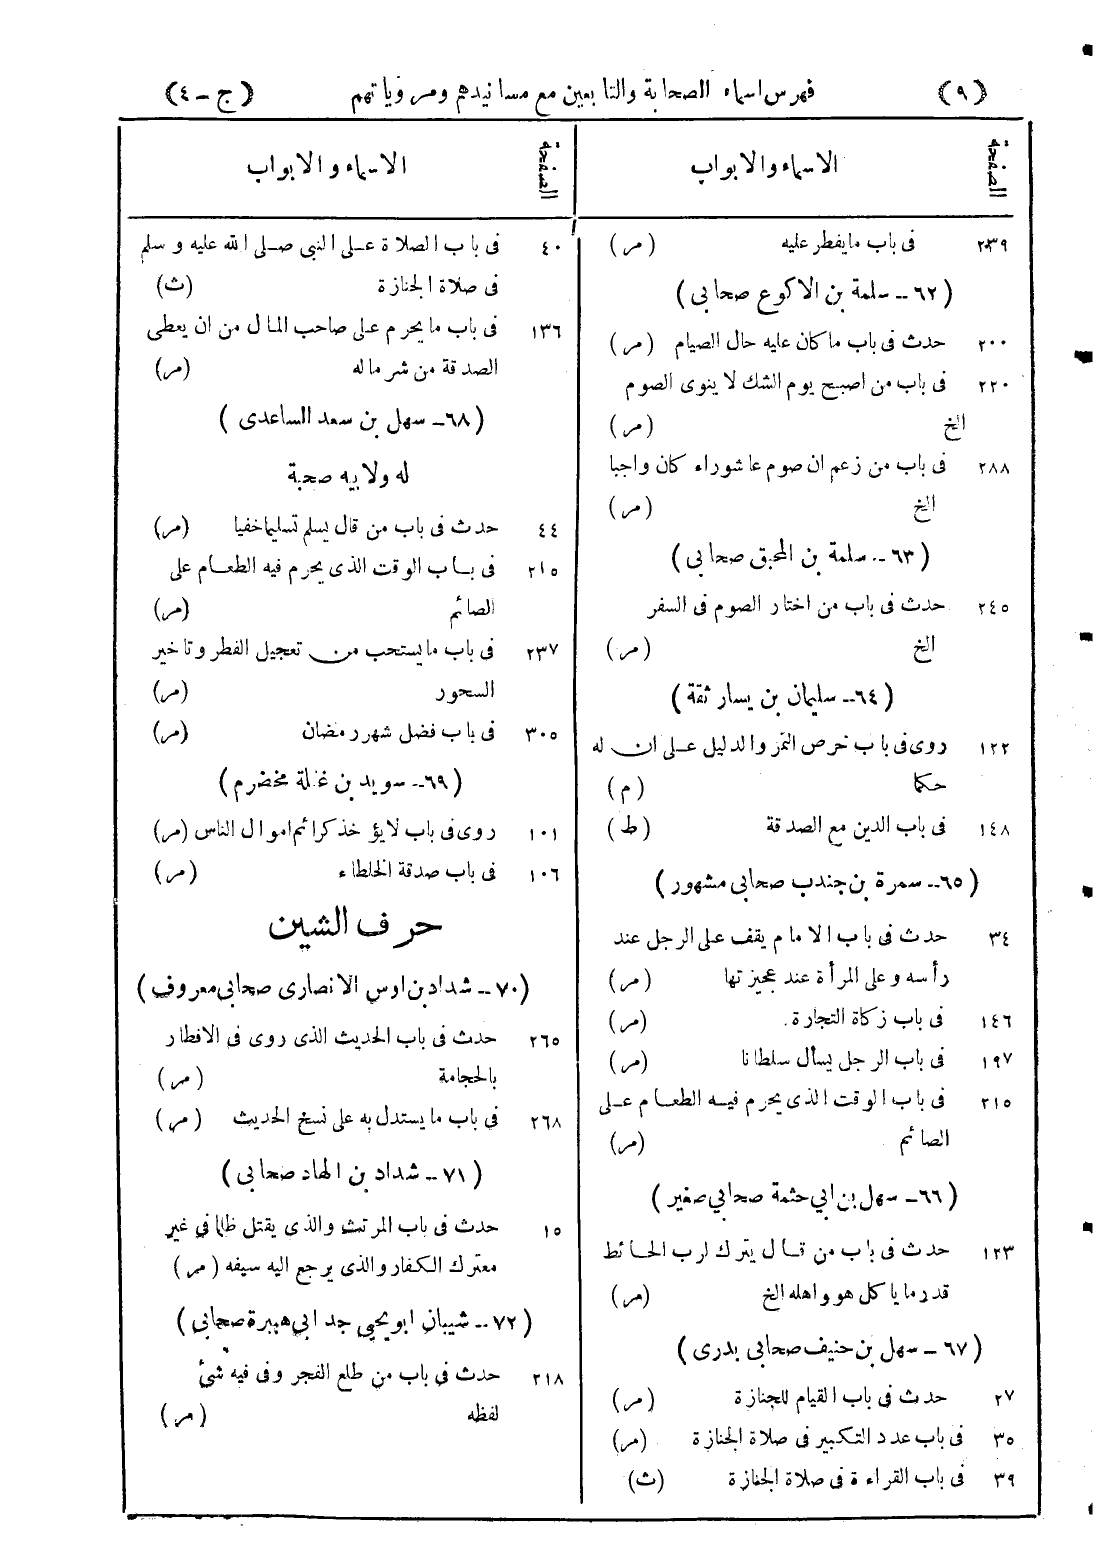 (٩) فهرس اسماء الصحابة والتابعين مع مسانيدهم ومروياتهم (ج - ٤)
الصفحة الاسماء والابواب
٢٣٩ فى باب مايفطر عليه (مر)
(٦٢ - سلمة بن الاكوع صحابى)
٢٠٠ حدث فى باب ما كان عليه حال الصيام (مر)
٢٢٠ فى باب من اصبح يوم الشك لا ينوى الصوم
الخ (مر)
٢٨٨ فى باب من زعم ان صوم عاشوراء كان واجبا
الخ (مر)
(٦٣ - سلمة بن المحبق صحابى)
٢٤٥ حدث فى باب من اختار الصوم فى السفر
الخ (مر)
(٦٤ - سليمان بن يسار ثقة)
١٢٢ روى فى باب خرص التمر والدليل على ان له
حكما (م)
١٤٨ فى باب الدين مع الصدقة (ط)
(٦٥ - سمرة بن جندب صحابى مشهور)
٣٤ حدث فى باب الامام يقف على الرجل عند
رأسه وعلى المرأة عند عجيزتها (مر)
١٤٦ فى باب زكاة التجارة. (مر)
١٩٧ فى باب الرجل يسأل سلطانا (مر)
٢١٥ فى باب الوقت الذى يحرم فيه الطعام على
الصائم (مر)
(٦٦ - سهل بن ابى حثمة صحابى صغير)
١٢٣ حدث فى باب من قال يترك لرب الحائط
قدر ما ياكل هو واهله الخ (مر)
(٦٧ - سهل بن حنيف صحابى بدرى)
٢٧ حدث فى باب القيام للجنازة (مر)
٣٥ فى باب عدد التكبير فى صلاة الجنازة (مر)
٣٩ فى باب القراءة فى صلاة الجنازة (ث)
الصفحة الاسماء والابواب
٤٠ فى باب الصلاة على النبى صلى الله عليه وسلم
فى صلاة الجنازة (ث)
١٣٦ فى باب ما يحرم على صاحب المال من ان يعطى
الصدقة من شر ماله (مر)
(٦٨ - سهل بن سعد الساعدى)
له ولابيه صحبة
٤٤ حدث فى باب من قال يسلم تسليما خفيا (مر)
٢١٥ فى باب الوقت الذى يحرم فيه الطعام على
الصائم (مر)
٢٣٧ فى باب ما يستحب من تعجيل الفطر وتاخير
السحور (مر)
٣٠٥ فى باب فضل شهر رمضان (مر)
(٦٩ - سويد بن غفلة مخضرم)
١٠١ روى فى باب لا يؤخذ كرائم اموال الناس (مر)
١٠٦ فى باب صدقة الخلطاء (مر)
حرف الشين
(٧٠ - شداد بن اوس الانصارى صحابى معروف)
٢٦٥ حدث فى باب الحديث الذى روى فى الافطار
بالحجامة (مر)
٢٦٨ فى باب ما يستدل به على نسخ الحديث (مر)
(٧١ - شداد بن الهاد صحابى)
١٥ حدث فى باب المرتث والذى يقتل ظلما فى غير
معترك الكفار والذى يرجع اليه سيفه (مر)
(٧٢ - شيبان ابو يحيى جد ابى هبيرة صحابى)
٢١٨ حدث فى باب من طلع الفجر وفى فيه شئ
لفظه (مر)